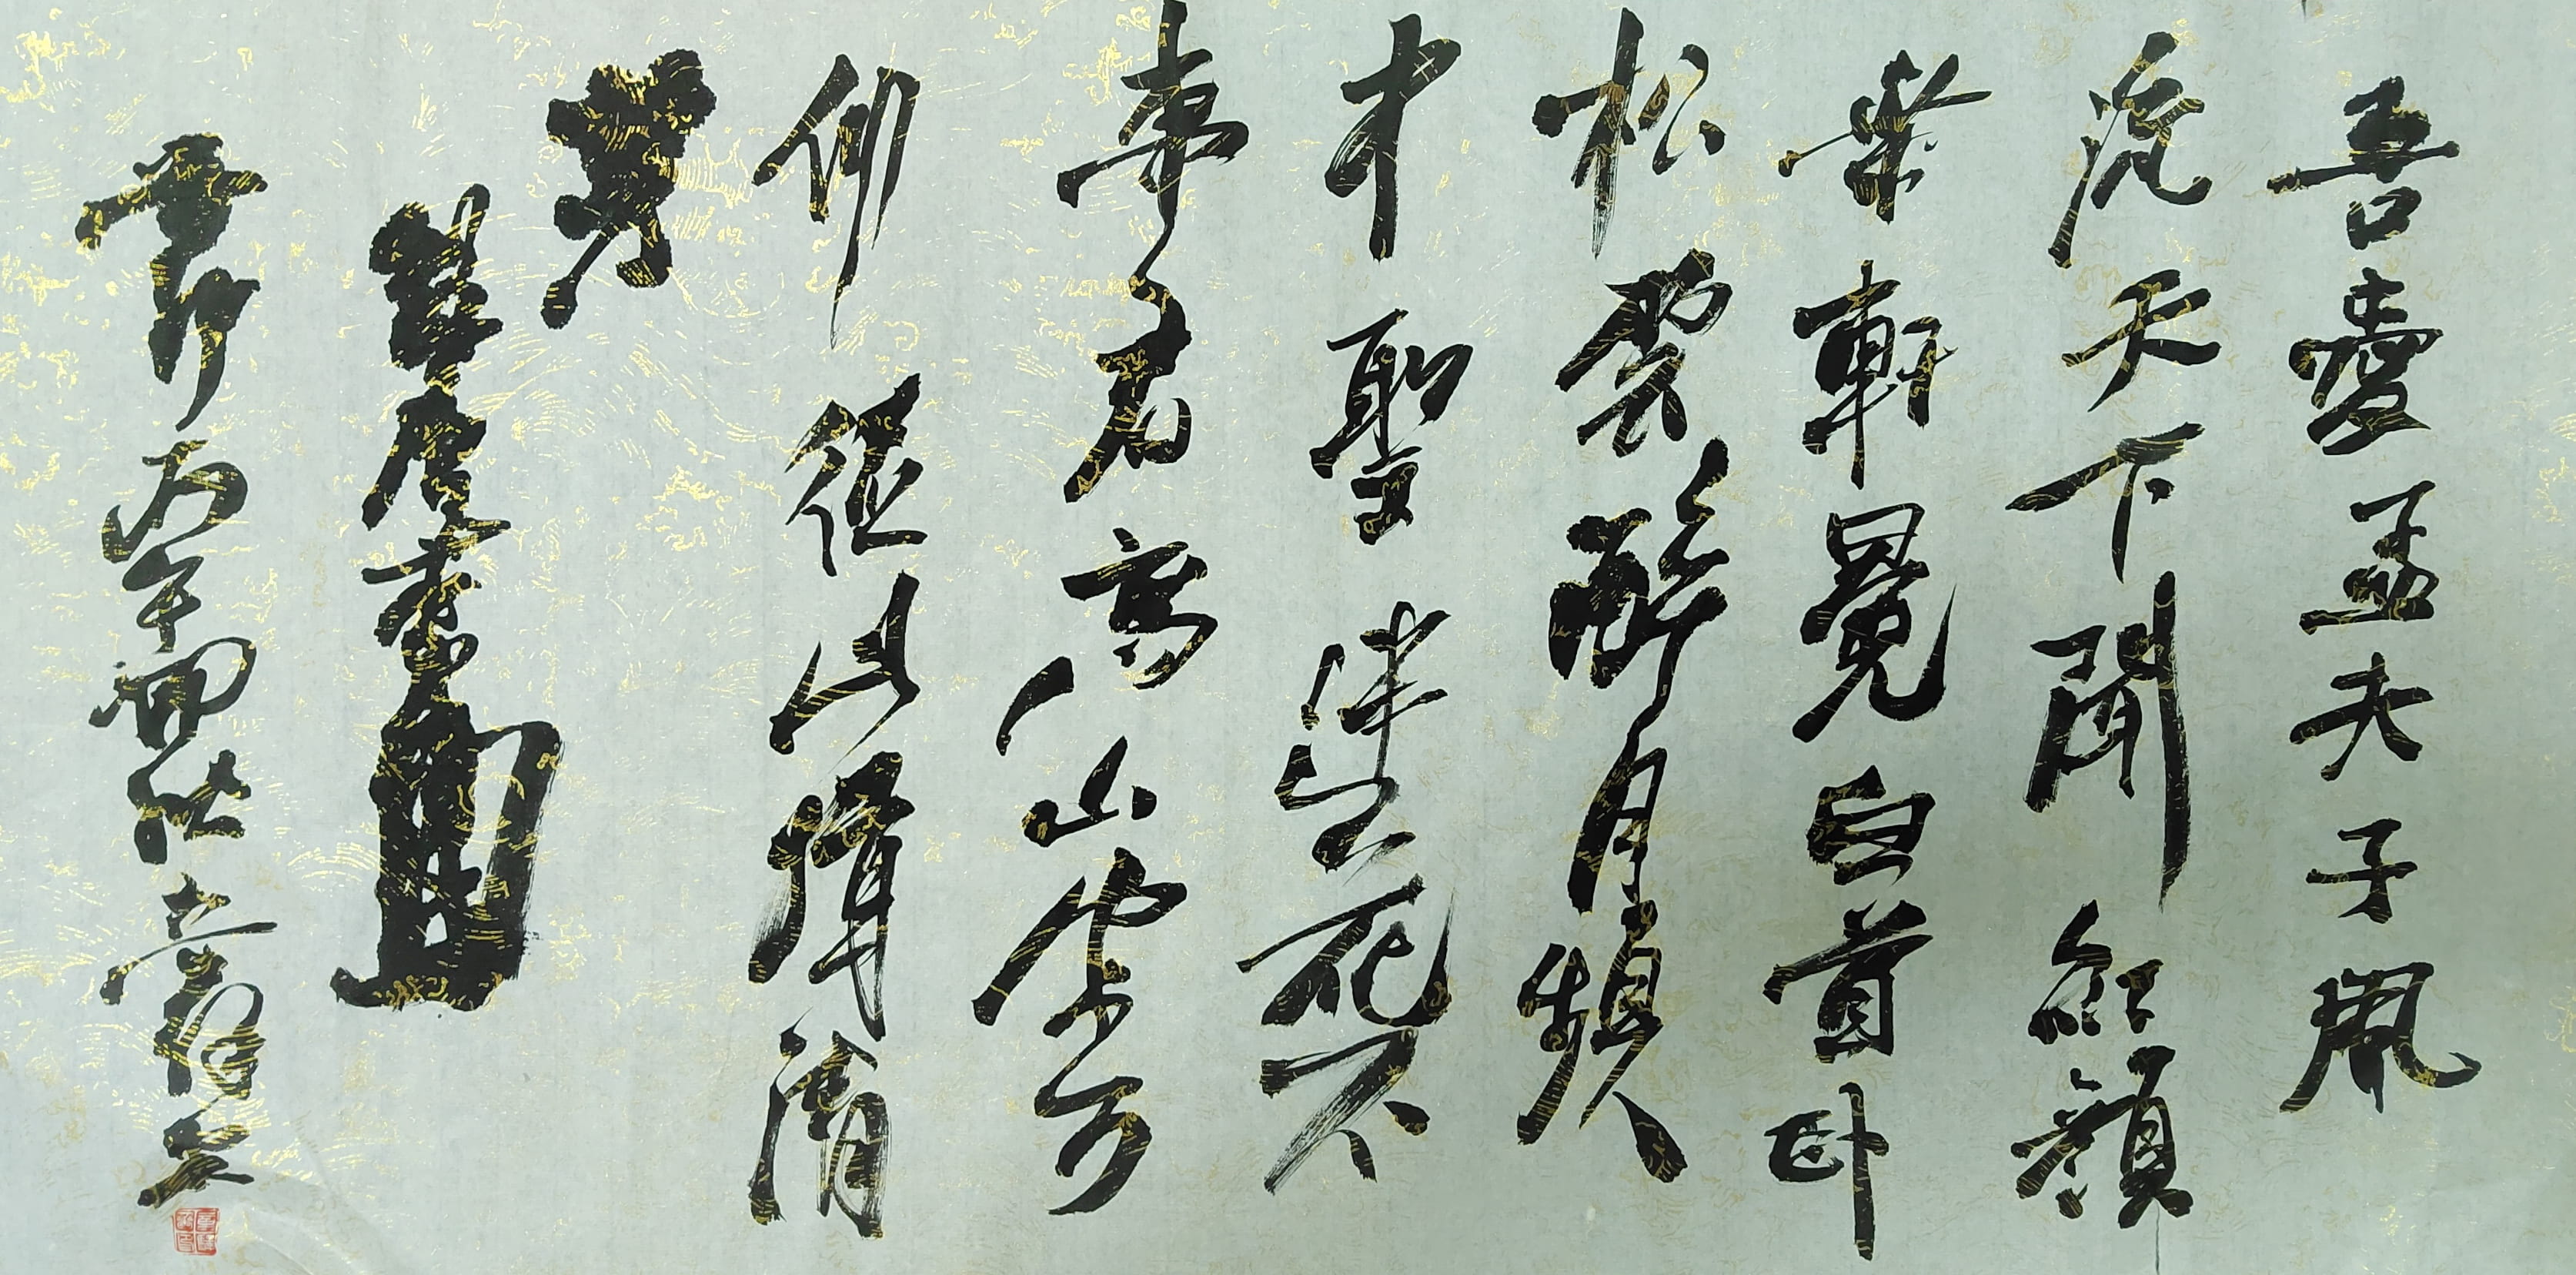 吾愛孟夫子風
流天下聞紅顏
棄軒冕白首臥
松雲醉月頻
中聖迷花不
事君高山安可
仰徒此揖清
芬
錄唐李白
丙午